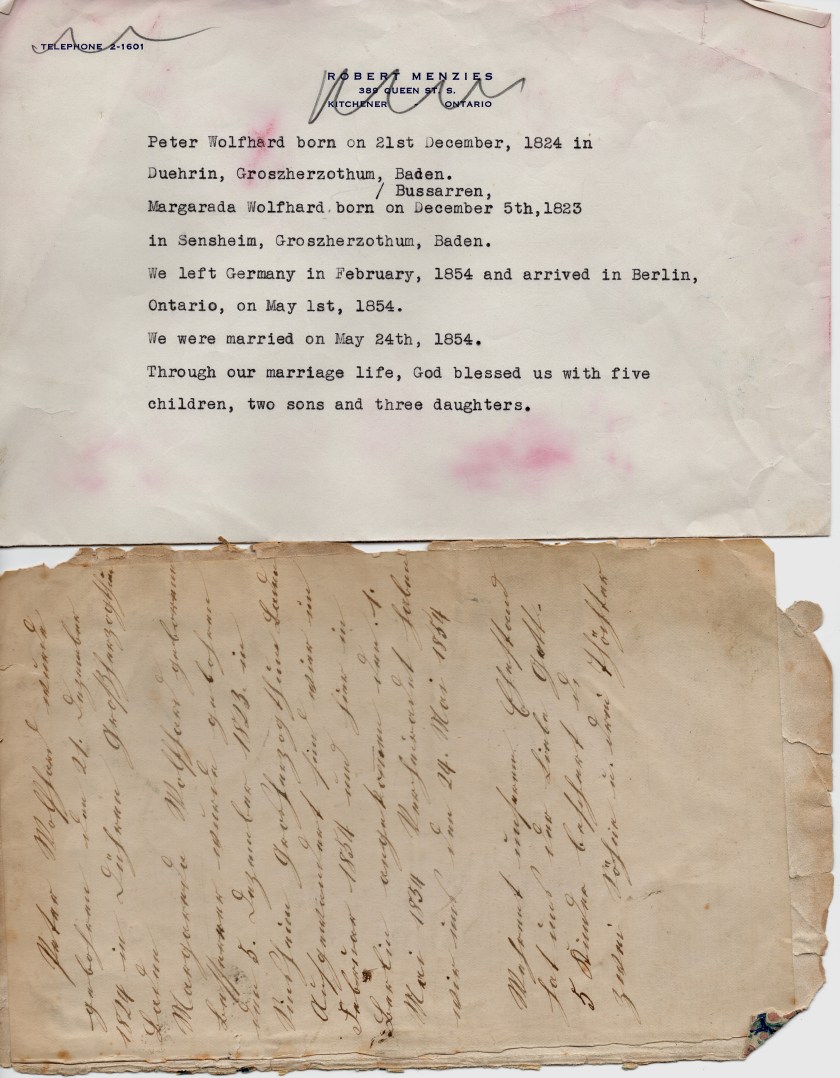 TELEPHONE 2-1601
ROBERT MENZIES
389 QUEEN ST. S.
KITCHENER - ONTARIO
Peter Wolfhard born on 21st December, 1824 in
Duehrin, Groszherzothum, Baden.
/ Bussarren,
Margarada Wolfhard born on December 5th,1823
in Sensheim, Groszherzothum, Baden.
We left Germany in February, 1854 and arrived in Berlin,
Ontario, on May 1st, 1854.
We were married on May 24th, 1854.
Through our marriage life, God blessed us with five
children, two sons and three daughters.
Peter Wolfhard wurde
geboren den 21. Dezember
1824 in Dühren Großherzogthum
Baden
Margareda Wolfhard geborene
wurde geboren
den 5. Dezember 1823 in
Sinsheim Großherzogthum Baden
Ausgewandert sind wir im
Februar 1854 und hier in
Berlin angekommen den 1.
Mai 1854 Verheiradet haben
wir uns den 24. Mai 1854
Während unserem Ehestand
hat uns der Liebe Gott
5 Kinder beschert
zwei Söhne u. drei Töchter